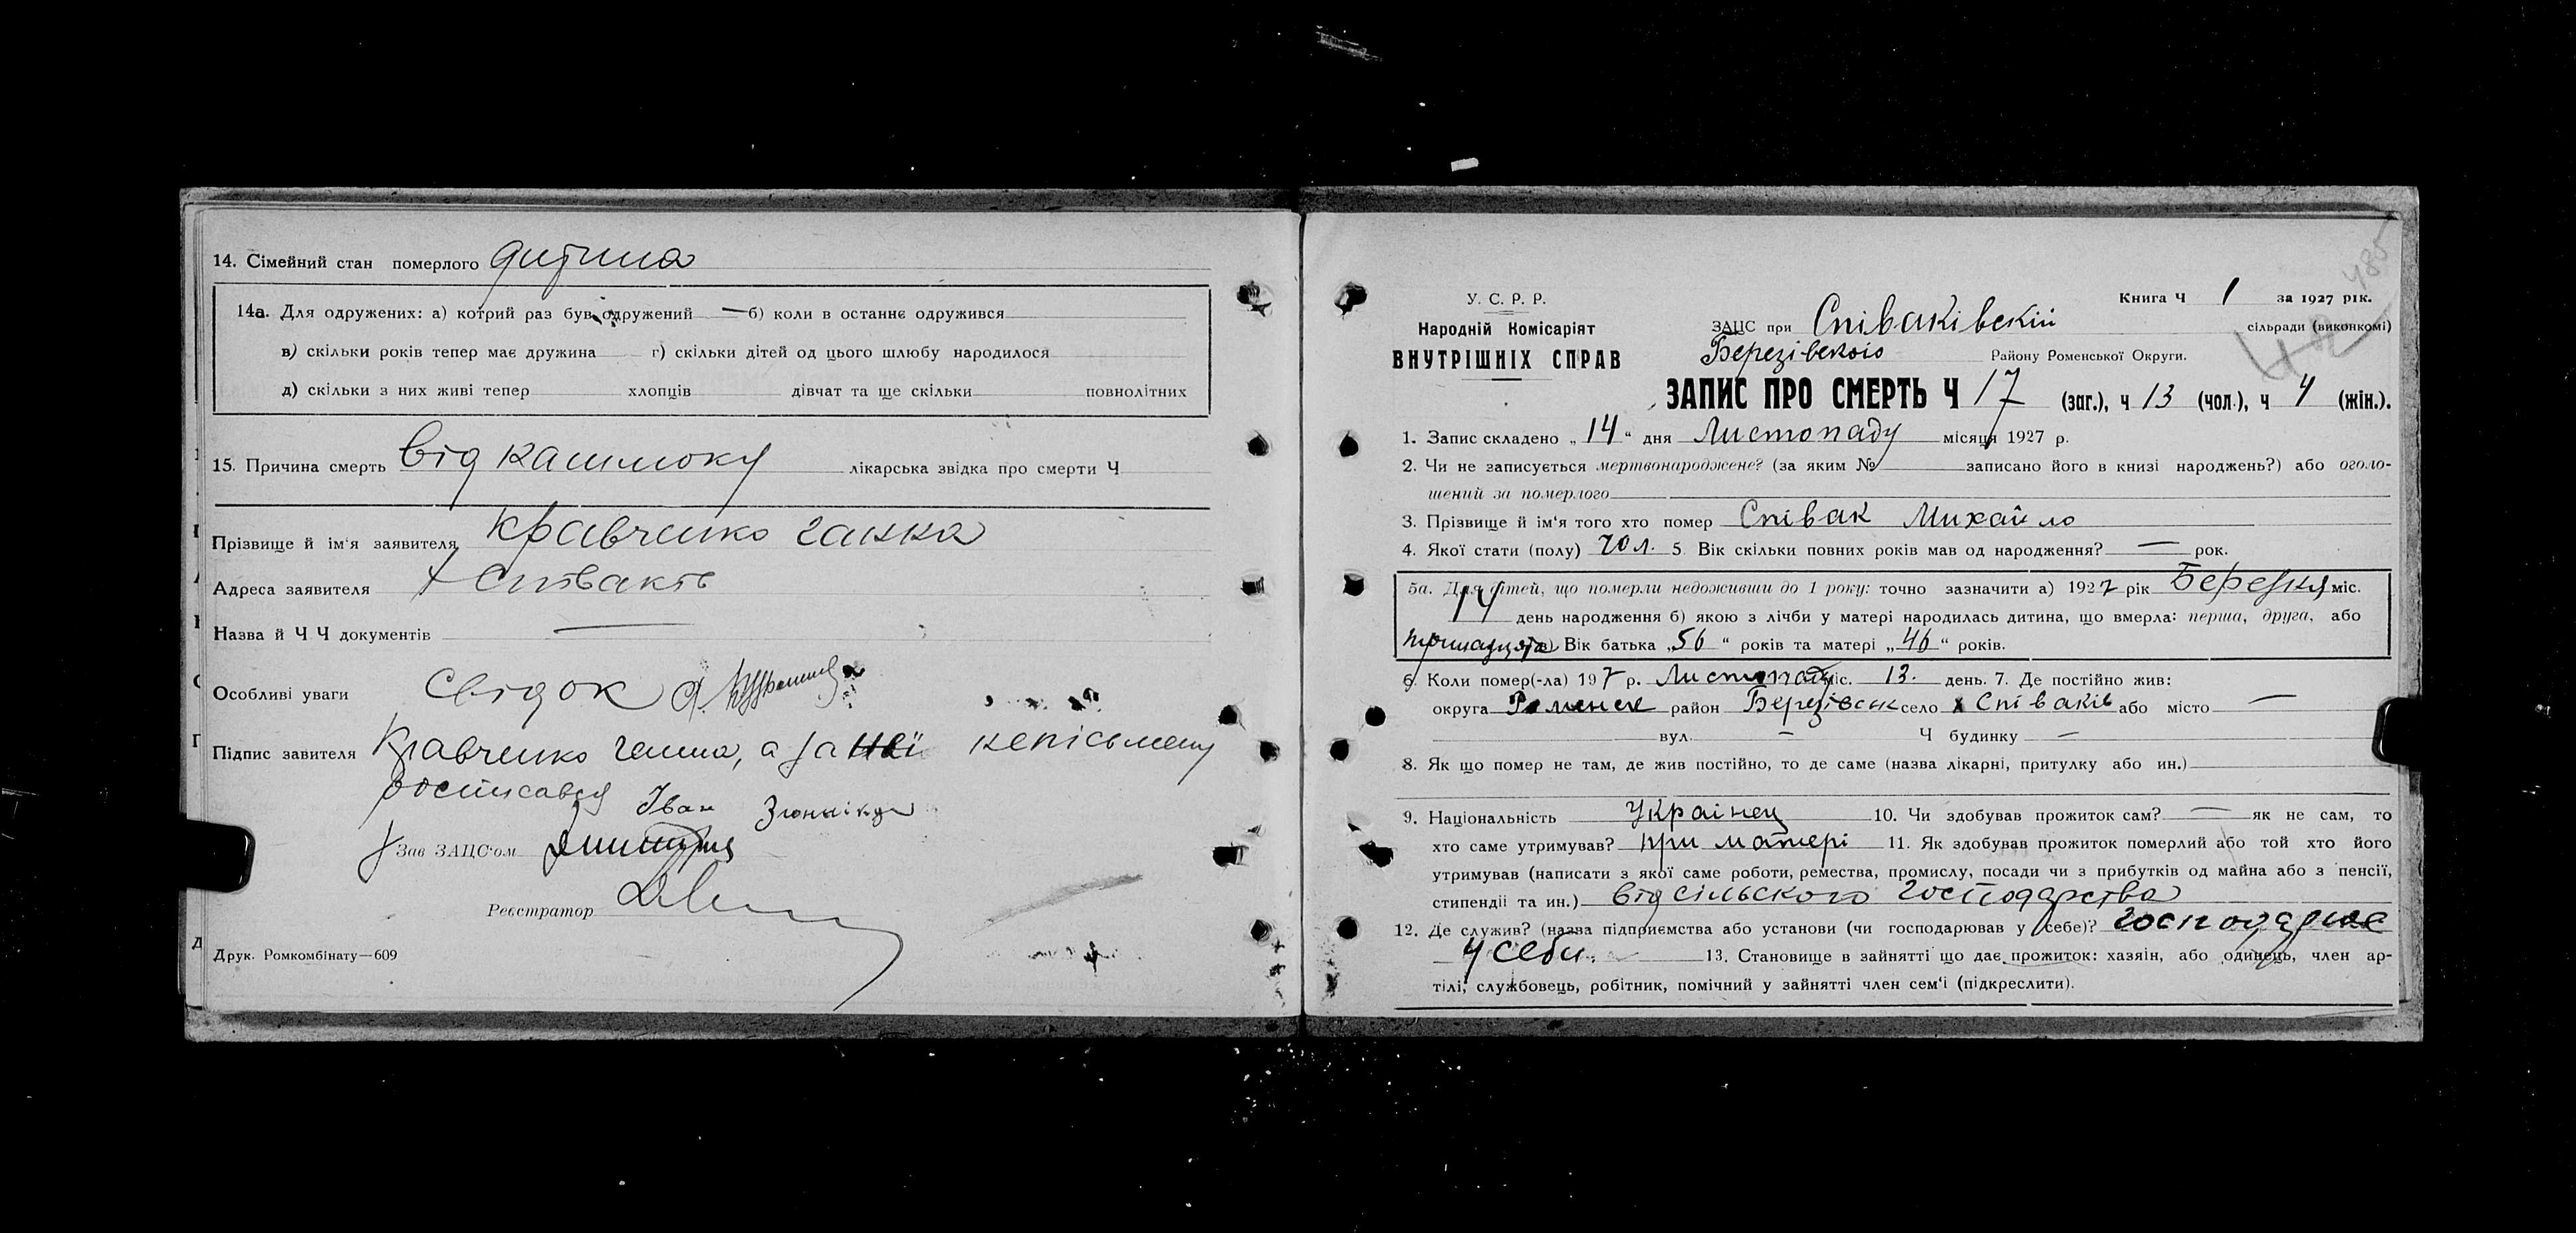 14. Сімейний стан померлого дитина
14а. Для одружених: а) котрий раз був одружений — б) коли в останнє одружився
в) скільки років тепер має дружина г) скільки дітей од цього шлюбу народилося
д) скільки з них живі тепер хлопців дівчат та ще скільки повнолітних
15. Причина смерть від кашлюку лікарська звідка про смерти Ч
Прізвище й ім'я заявителя Кравченко Ганна
Адреса заявителя х Співаків
Назва й Ч Ч документів —
Особливі уваги Свідок
Підпис завителя Кравченко Ганна, а за неї непісьмену
росписався Іван
Зав ЗАЦС'ом
Реєстратор
Друк. Ромкомбінату—609
485
У. С. Р. Р.
Народній Комісаріят
ВНУТРІШНІХ СПРАВ
Книга Ч 1 за 1927 рік.
ЗАЦС при Співаківскій сільради (виконкомі)
Березівского Району Роменської Округи.
42
ЗАПИС ПРО СМЕРТЬ Ч 17 (заг.), ч 13 (чол.), ч 4 (жін.).
1. Запис складено „14“ дня Листопаду місяця 1927 р.
2. Чи не записується мертвонароджене? (за яким № записано його в книзі народжень?) або оголо-
шений за померлого
3. Прізвище й ім'я того хто помер Співак Михайло
4. Якої стати (полу) чол. 5 Вік скільки повних років мав од народження? — рок.
5а. Для дітей, що померли недоживши до 1 року: точно зазначити а) 1927 рік Березня міс.
14 день народження б) якою з лічби у матері народилась дитина, що вмерла: перша, друга, або
тринадцята в) Вік батька „56“ років та матері „46“ років.
6. Коли помер(-ла) 197 р. Листопаду міс. 13. день. 7. Де постійно жив:
округа Роменск район Березівськ село х Співаків або місто —
вул. — Ч будинку —
8. Як що помер не там, де жив постійно, то де саме (назва лікарні, притулку або ин.)
9. Національність Украінец 10. Чи здобував прожиток сам? — як не сам, то
хто саме утримував? при матері 11. Як здобував прожиток померлий або той хто його
утримував (написати з якої саме роботи, ремества, промислу, посади чи з прибутків од майна або з пенсії,
стипендії та ин.) від сільского господарства
12. Де служив? (назва підприємства або установи (чи господарював у себе)? господарює
у себе. 13. Становище в зайнятті що дає прожиток: хазяін, або одинець, член ар-
тілі, службовець, робітник, помічний у зайнятті член сем'і (підкреслити).